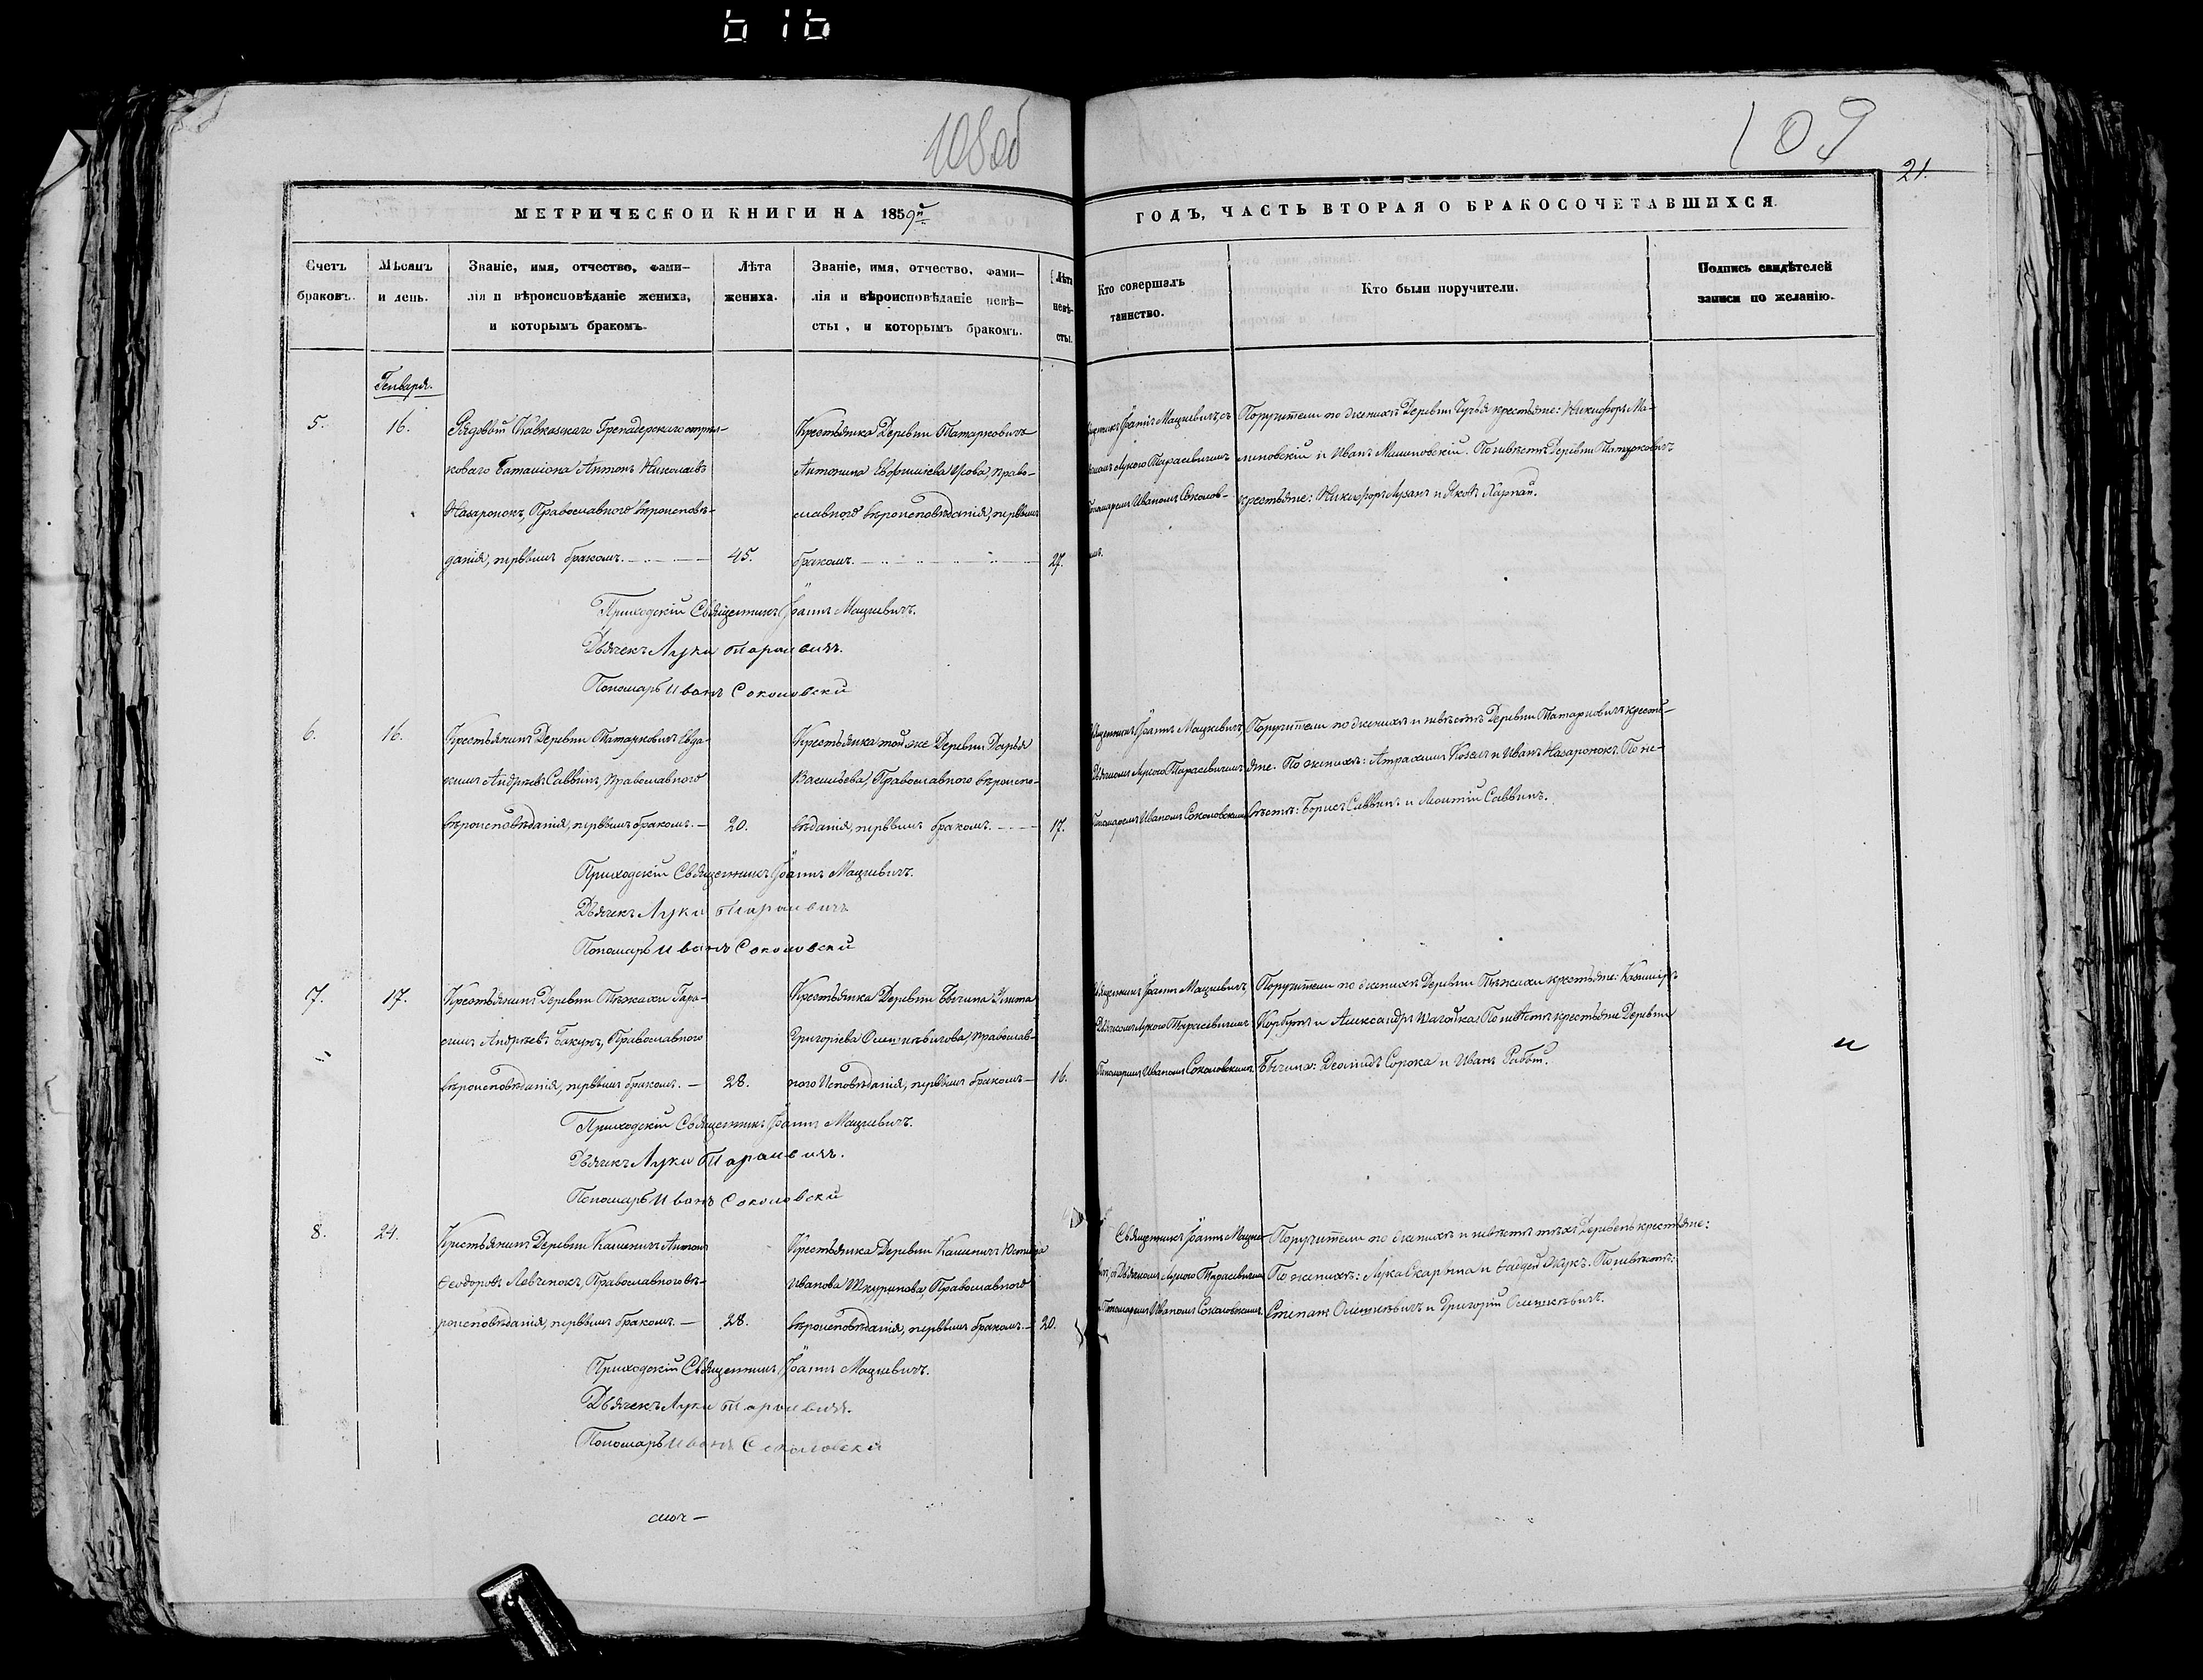 616
108об
109
21.
МЕТРИЧЕСКОЙ КНИГИ НА 1859й
ГОДЪ, ЧАСТЬ ВТОРАЯ О БРАКОСОЧЕТАВШИХСЯ.
Счетъ
браковъ.
Мѣсяцъ
и день.
Званіе, имя, отчество, фами-
лія и вѣроисповѣданіе жениха,
и которымъ бракомъ.
Лѣта
жениха.
Званіе, имя, отчество, фами-
лія и вѣроисповѣданіе невѣ-
сты, и которымъ бракомъ.
Лѣта
невѣ-
сты.
Кто совершалъ
таинство.
Кто были поручители.
Подпись свидѣтелей
записи по желанію.
Генваря.
5.
16.
Рядовый Кавказскаго Гренадерскаго стрѣл-
коваго Баталіона Антонъ Николаевъ
Назаронокъ, Православнаго вѣроисповѣ-
данія, первымъ бракомъ.
45.
Крестьянка Деревни Татарковичъ
Антонина Евфиміева, право-
славнаго вѣроисповѣданія, первымъ
бракомъ.
27.
Іоаннъ Мацкевичъ, съ
Лукою Тарасевичемъ
Иваномъ Соколов-
Поручители по женихѣ Деревни крестьяне: Никифоръ Ма-
линовскій и Иванъ Малиновскій. По невѣстѣ Деревни Татарковичъ
крестьяне: Никифоръ Лузанъ и Яковъ Харпай.
Приходскій Священникъ Іоаннъ Мацкевичъ.
Дьячекъ Лука Тарасевичъ.
Пономарь Иванъ Соколовскій
6.
16.
Крестьянинъ Деревни Татарковичъ Евдо-
кимъ Андреевъ Саввинъ, Православнаго
вѣроисповѣданія, первымъ бракомъ.
20.
Крестьянка той же Деревни Дарья
Васильева, Православнаго вѣроиспо-
вѣданія, первымъ бракомъ.
17.
Священникъ Іоаннъ Мацкевичъ,
Дьячкомъ Лукою Тарасевичемъ
Пономаремъ Иваномъ Соколовскимъ
Поручители по женихѣ и невѣстѣ Деревни Татарковичъ кресть-
яне. По женихѣ: Козелъ и Иванъ Назаронокъ. По не-
вѣстѣ: Борисъ Саввинъ и Саввинъ.
Приходскій Священникъ Іоаннъ Мацкевичъ.
Дьячекъ Лука Тарасевичъ
Пономарь Иванъ Соколовскій
7.
17.
Крестьянинъ Деревни Гера-
симъ Андреевъ Бакунъ, Православнаго
вѣроисповѣданія, первымъ бракомъ.
28.
Крестьянка Деревни Бычина
Григорьева, Православ-
наго Исповѣданія, первымъ бракомъ
16.
Священникъ Іоаннъ Мацкевичъ,
Дьячкомъ Лукою Тарасевичемъ
Пономаремъ Иваномъ Соколовскимъ
Поручители по женихѣ Деревни крестьяне: Казиміръ
Корбутъ и Александръ Шагойка. По невѣстѣ крестьяне Деревни
Бычина: Сорока и Иванъ.
и
Приходскій Священникъ Іоаннъ Мацкевичъ.
Дьячекъ Лука Тарасевичъ.
Пономарь Иванъ Соколовскій
8.
24.
Крестьянинъ Деревни Каменичъ Антонъ
Ѳеодоровъ Левченокъ, Православнаго вѣ-
роисповѣданія, первымъ бракомъ.
28.
Крестьянка Деревни Каменичъ
Иванова Шкуринова, Православнаго
вѣроисповѣданія, первымъ бракомъ.
20.
Священникъ Іоаннъ Мацке-
вичъ, съ Дьячкомъ Лукою Тарасевичемъ
Пономаремъ Иваномъ Соколовскимъ.
Поручители по женихѣ и невѣстѣ тѣхъ Деревень крестьяне:
По женихѣ: Лука Скарына и Ѳадей Жукъ. По невѣстѣ:
Степанъ Олешкевичъ и Григорій Олешкевичъ.
Приходскій Священникъ Іоаннъ Мацкевичъ.
Дьячекъ Лука Тарасевичъ.
Пономарь Иванъ Соколовскій